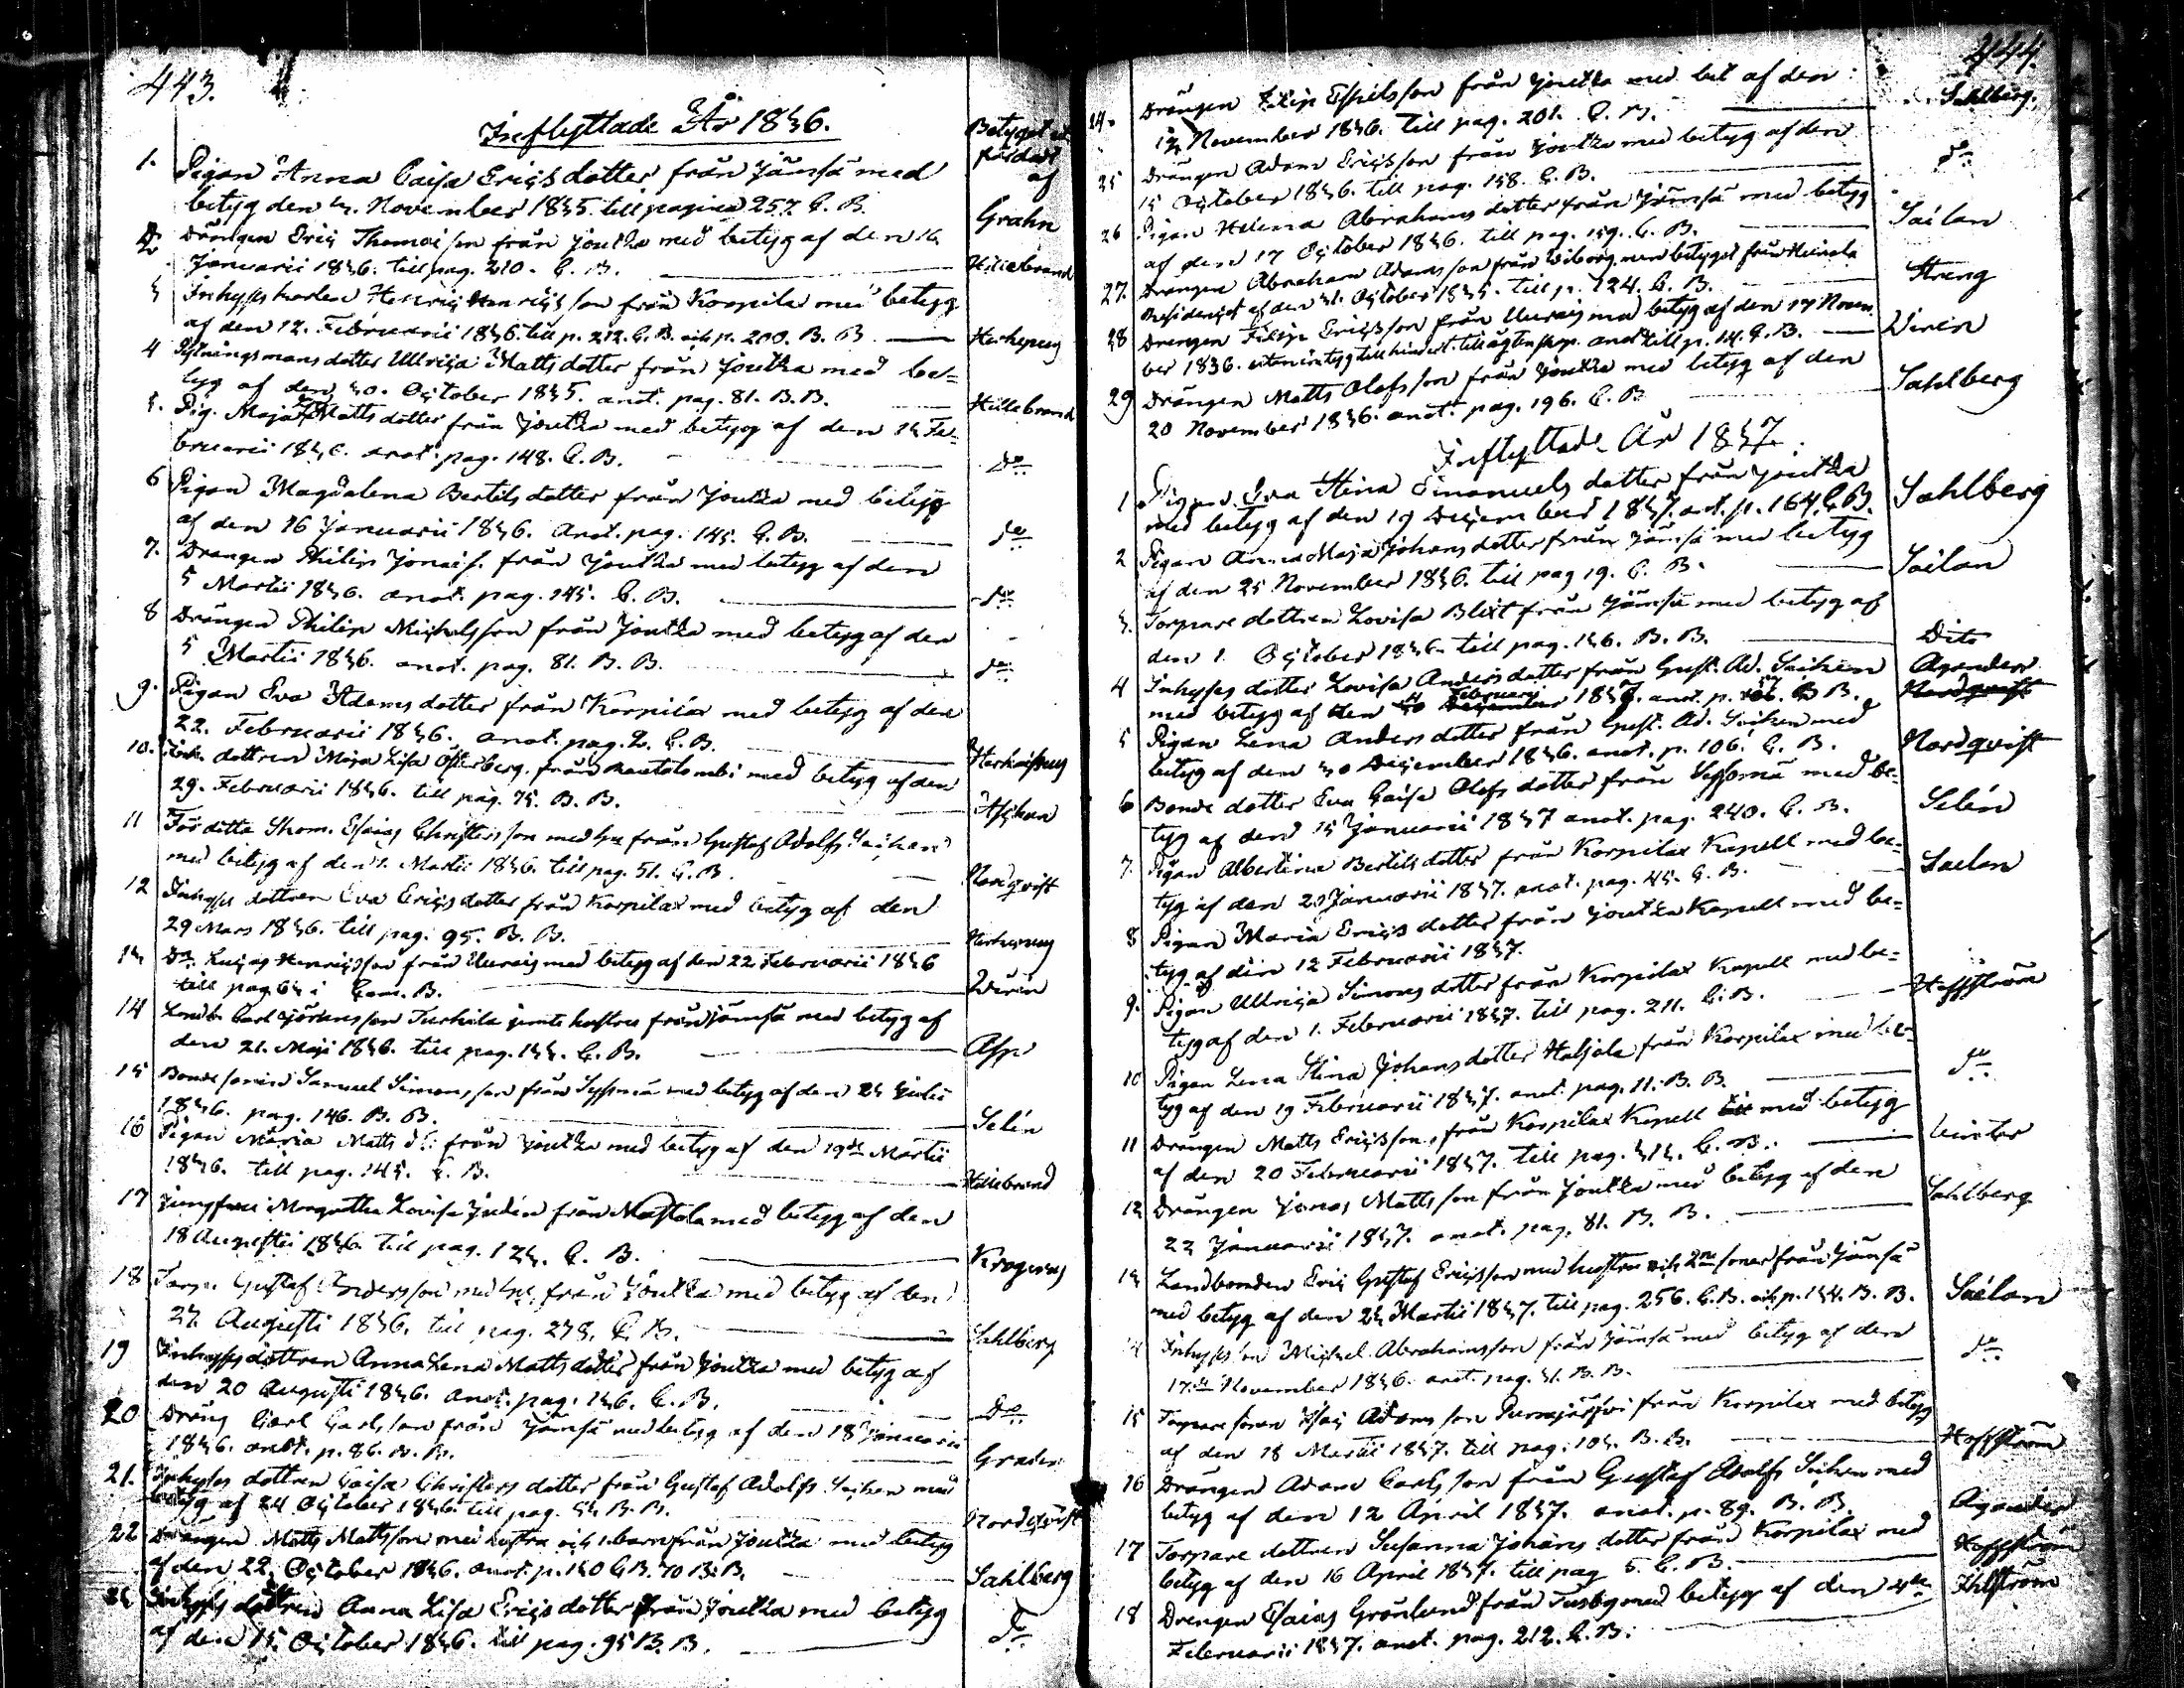 443.
Inflyttade År 1836.
Betyget ut
färdadt
af
1. Pigan Anna Caisa Ericsdotter från Jämsä med
betyg den 3. November 1835. till pagina 257. G. B.
Grahn
2 Drängen Eric Thomasson från Joutsa med betyg af den 16
Januarii 1836. till pag. 210. G. B.
Hillebrand
3 Inhyses karlen Henric Henricsson från Korpila med betyg
af den 12. Februarii 1836. till p. 212. G. B. och p. 200. B. B.
4 dotter Ullrica Mattsdotter från Joutsa med be=
tyg af den 30. October 1835. anot. pag. 81. B. B.
Hillebrand
5. Pig. Maja Mattsdotter från Joutsa med betyg af den 13 Fe=
bruarii 1836. anot. pag. 148. G. B.
Do
6 Pigan Magdalena Bertilsdotter från Joutsa med betyg
af den 16 Januarii 1836. Anot. pag. 145. G. B.
do
7. Drängen Philip Jonass. från Joutsa med betyg af den
5 Martii 1836. anot. pag. 145. G. B.
do
8 Drängen Philip Michelsson från Joutsa med betyg af den
5 Martii 1836. anot. pag. 81. B. B.
do
9. Pigan Eva Adamsdotter från Korpilax med betyg af den
22. Februarii 1836. anot. pag. 2. G. B.
10. Inh. dottren Maja Lisa Österberg från Rautalambi med betyg af den
29. Februarii 1836. till pag. 75. B. B.
11 Esaias Christersson med hu från Gustaf Adolfs Socken
med betyg af den 1. Martii 1836. till pag. 51. G. B.
Nordqvist
12 Inhyses dottren Eva Ericsdotter från Korpilax med betyg af den
29 Mars 1836. till pag. 95. B. B.
13 Dr. Lucas Henricsson från Uurais med betyg af den 22 Februarii 1836
till pag. 63 i Gam. B.
Wirén
14 Landb. Carl Jöransson Turkila jemte hustru från Jämsä med betyg af
den 21. Maji 1836. till pag. 133. G. B.
Asp
15 Bonde sonen Samuel Simonsson från Sysmä med betyg af den 23 Julii
1836. pag. 146. B. B.
Selin
16 Pigan Maria Matts dr från Joutsa med betyg af den 19de Martii
1836. till pag. 145. G. B.
Hillebrand
17 Jungfrun Margretha Lovisa Judén från Nastola med betyg af den
18 Augusti 1836. till pag. 123. G. B.
Krogerus
18 Torp. Gustaf Andersson med hu. från Joutsa med betyg af den
27. Augusti 1836. till pag. 238. G. B.
Sahlberg
19 Inhyses dottren Anna Lena Mattsdotter från Joutsa med betyg af
den 20 Augusti 1836. anot. pag. 136. G. B.
Do
20 Dräng Carl Carlsson från Jämsä med betyg af den 18 Januarii
1836. anot. p. 86. B. B.
21. Inhyses dottren Caisa Christersdotter från Gustaf Adolfs Socken med
betyg af 24 October 1836. till pag. 53 B. B.
Nordqvist
22 Drängen Matts Mattsson med hustru och 1 barn från Joutsa med betyg
af den 22. October 1836. anot. p. 130 G. B. 70 B. B.
Sahlberg
23 Inhyses dottren Anna Lisa Ericsdotter från Joutsa med betyg
af den 15 October 1836. till pag. 95 B. B.
do
444.
24. Drängen Filip från Joutsa med bet af den
13 November 1836. till pag. 201. G. B.
Sahlberg.
25 Drängen Adam Ericsson från Joutsa med betyg af den
15 October 1836. till pag. 138. G. B.
do
26 Pigan Helena Abrahamsdotter från Jämsä med betyg
af den 17 October 1836. till pag. 159. G. B.
Sailan
27. Drängen Abraham Adamsson från Wiborg, men betyget från Heinola
af den 31. October 1835. till p. 124. G. B.
Streng
28 Drengen Filip Ericsson från Uurais med betyg af den 17 Novem
ber 1836. till p. 14. G. B.
Wirén
29 Drängen Matts Olofsson från Joutsa med betyg af den
20 November 1836. anot. pag. 196. G. B.
Sahlberg
Inflyttade År 1837.
1 Pigan Eva Stina Emanuelsdotter från Joutsa
med betyg af den 19 December 1837. ant. p. 164. G. B.
Sahlberg
2 Pigan Anna Maja Johansdotter från Jämsä med betyg
af den 25 November 1836. till pag 19. G. B.
Sailan
3. Torpare dottren Lovisa Blixt från Jämsä med betyg af
den 1 October 1836. till pag. 136. B. B.
Dito
4 Inhyses dotter Lovisa Andersdotter från Gust. Ad. Socken
med betyg af den February 1837. anot. p. B B.
Agander
5 Pigan Lena Andersdotter från Gust. Ad. Socken med
betyg af den 30 December 1836. anot. p. 106. G. B.
Nordqvist
6 Bonde dotter Eva Caisa Olofsdotter från Sysmä med be=
tyg af den 15 Januarii 1837 anot. pag. 240. G. B.
Selén
7. Pigan Albertina Bertilsdotter från Korpilax Kapell med be=
tyg af den 20 Januarii 1837. anot. pag. 45. G. B.
Saelan
8 Pigan Maria Ericsdotter från Joutsa Kapell med be=
tyg af den 12 Februarii 1837.
9. Pigan Ullrica Simonsdotter från Korpilax Kapell med be=
tyg af den 1. Februarii 1837. till pag. 211. G. B.
Hoffström
10 Pigan Lena Stina Johansdotter från Korpilax med be=
tyg af den 19 Februarii 1837. anot. pag. 11. B. B.
do
11 Drängen Matts Ericsson från Korpilax Kapell med betyg
af den 20 Februarii 1837. till pag. 313. G. B.
12 Drängen Jonas Mattsson från Joutsa med betyg af den
22 Januarii 1837. anot. pag. 81. B. B.
Sahlberg
13 Landbonden Eric Gustaf Ericsson med hustru och 2ne söner från Jämsä
med betyg af den 23 Martii 1837. till pag. 256. G. B. och p. 134. B. B.
Sailan
14 Inhyses son Michel Abrahamsson från Jämsä med betyg af den
17de November 1836. anot. pag. 31. B. B.
do
15 Torpare sonen Esaj Adamsson från Korpilax med betyg
af den 18 Martii 1837. till pag. 103. B. B.
Hoffström
16 Drängen Adam Carlsson från Gustaf Adolfs Socken med
betyg af den 12 April 1837. anot. p. 89. B. B.
Agander
17 Torpare dottren Susanna Johansdotter från Korpilax med
betyg af den 16 April 1837. till pag 5. G. B.
Hoffström
18 Drengen Esaias Grönlund från Tusby med betyg af den 4de
Februarii 1837. anot. pag. 212. G. B.
Ihlström